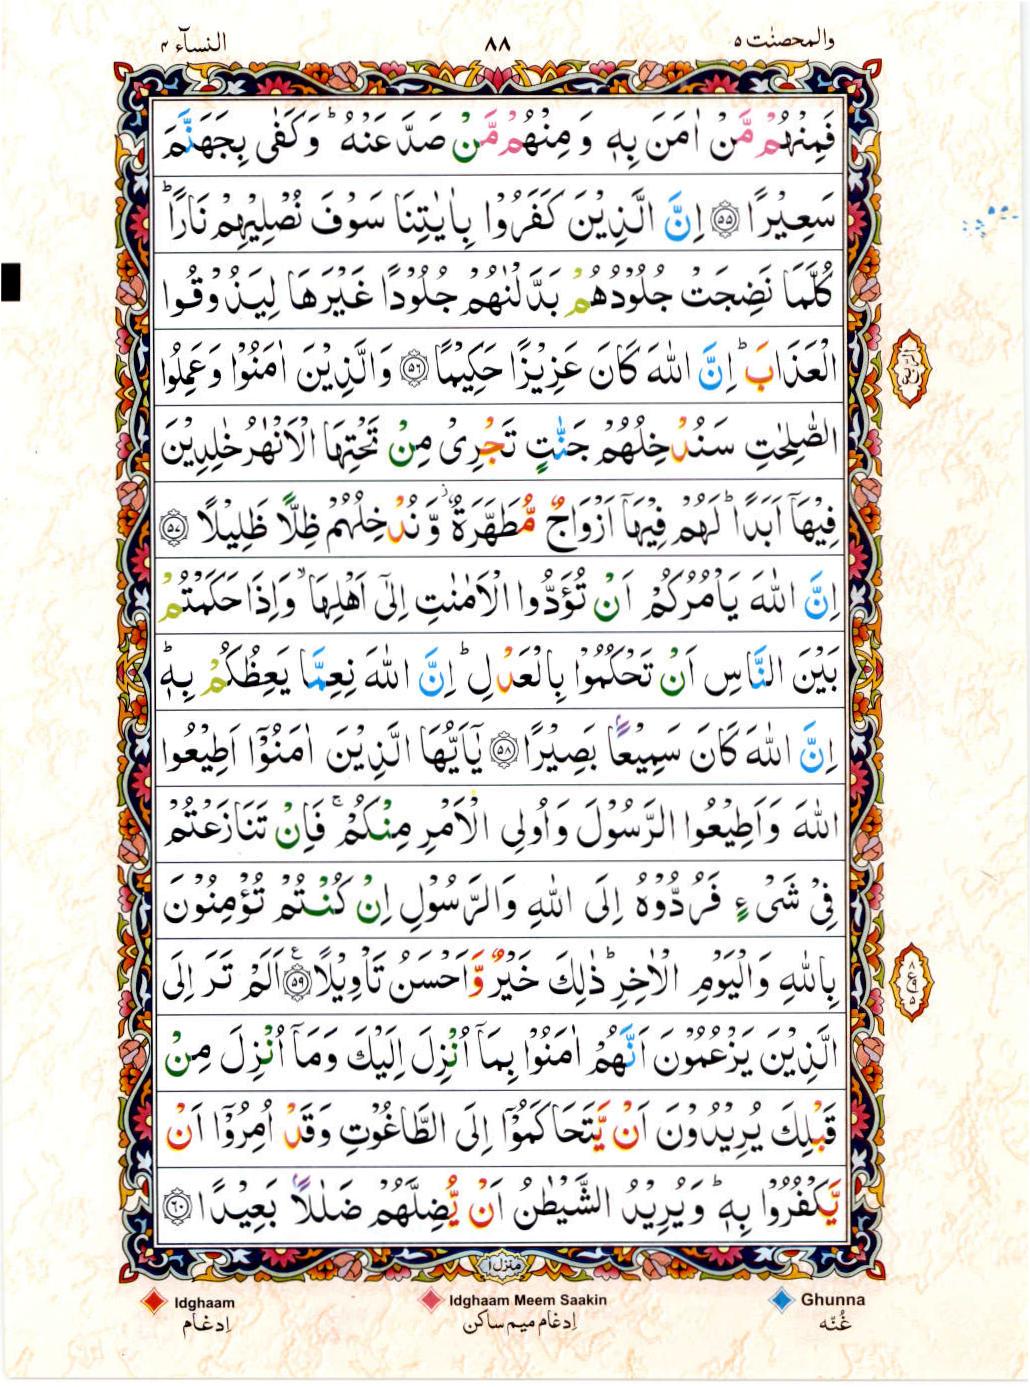 والمحصنٰت ٥
٨٨
النسآء ٤
فَمِنْهُمْ مَّنْ اٰمَنَ بِهٖ وَمِنْهُمْ مَّنْ صَدَّ عَنْهُ ؕ وَكَفٰى بِجَهَنَّمَ
سَعِيْرًا ﴿٥٥﴾ اِنَّ الَّذِيْنَ كَفَرُوْا بِاٰيٰتِنَا سَوْفَ نُصْلِيْهِمْ نَارًا ؕ
كُلَّمَا نَضِجَتْ جُلُوْدُهُمْ بَدَّلْنٰهُمْ جُلُوْدًا غَيْرَهَا لِيَذُوْقُوا
الْعَذَابَ ؕ اِنَّ اللّٰهَ كَانَ عَزِيْزًا حَكِيْمًا ﴿٥٦﴾ وَالَّذِيْنَ اٰمَنُوْا وَعَمِلُوا
الرُّبع
الصّٰلِحٰتِ سَنُدْخِلُهُمْ جَنّٰتٍ تَجْرِىْ مِنْ تَحْتِهَا الْاَنْهٰرُ خٰلِدِيْنَ
فِيْهَاۤ اَبَدًا ؕ لَهُمْ فِيْهَاۤ اَزْوَاجٌ مُّطَهَّرَةٌ ؗ وَّنُدْخِلُهُمْ ظِلًّا ظَلِيْلًا ﴿٥٧﴾
اِنَّ اللّٰهَ يَاْمُرُكُمْ اَنْ تُؤَدُّوا الْاَمٰنٰتِ اِلٰٓى اَهْلِهَا ۙ وَاِذَا حَكَمْتُمْ
بَيْنَ النَّاسِ اَنْ تَحْكُمُوْا بِالْعَدْلِ ؕ اِنَّ اللّٰهَ نِعِمَّا يَعِظُكُمْ بِهٖ ؕ
اِنَّ اللّٰهَ كَانَ سَمِيْعًۢا بَصِيْرًا ﴿٥٨﴾ يٰۤاَيُّهَا الَّذِيْنَ اٰمَنُوْۤا اَطِيْعُوا
اللّٰهَ وَاَطِيْعُوا الرَّسُوْلَ وَاُولِى الْاَمْرِ مِنْكُمْ ۚ فَاِنْ تَنَازَعْتُمْ
فِىْ شَىْءٍ فَرُدُّوْهُ اِلَى اللّٰهِ وَالرَّسُوْلِ اِنْ كُنْتُمْ تُؤْمِنُوْنَ
بِاللّٰهِ وَالْيَوْمِ الْاٰخِرِ ؕ ذٰلِكَ خَيْرٌ وَّاَحْسَنُ تَاْوِيْلًا ﴿٥٩﴾ ع اَلَمْ تَرَ اِلَى
٨
ع
٥
الَّذِيْنَ يَزْعُمُوْنَ اَنَّهُمْ اٰمَنُوْا بِمَاۤ اُنْزِلَ اِلَيْكَ وَمَاۤ اُنْزِلَ مِنْ
قَبْلِكَ يُرِيْدُوْنَ اَنْ يَّتَحَاكَمُوْۤا اِلَى الطَّاغُوْتِ وَقَدْ اُمِرُوْۤا اَنْ
يَّكْفُرُوْا بِهٖ ؕ وَيُرِيْدُ الشَّيْطٰنُ اَنْ يُّضِلَّهُمْ ضَلٰلًۢا بَعِيْدًا ﴿٦٠﴾
منزل ١
Idghaam
اِدغام
Idghaam Meem Saakin
اِدغام میم ساکن
Ghunna
غُنّه